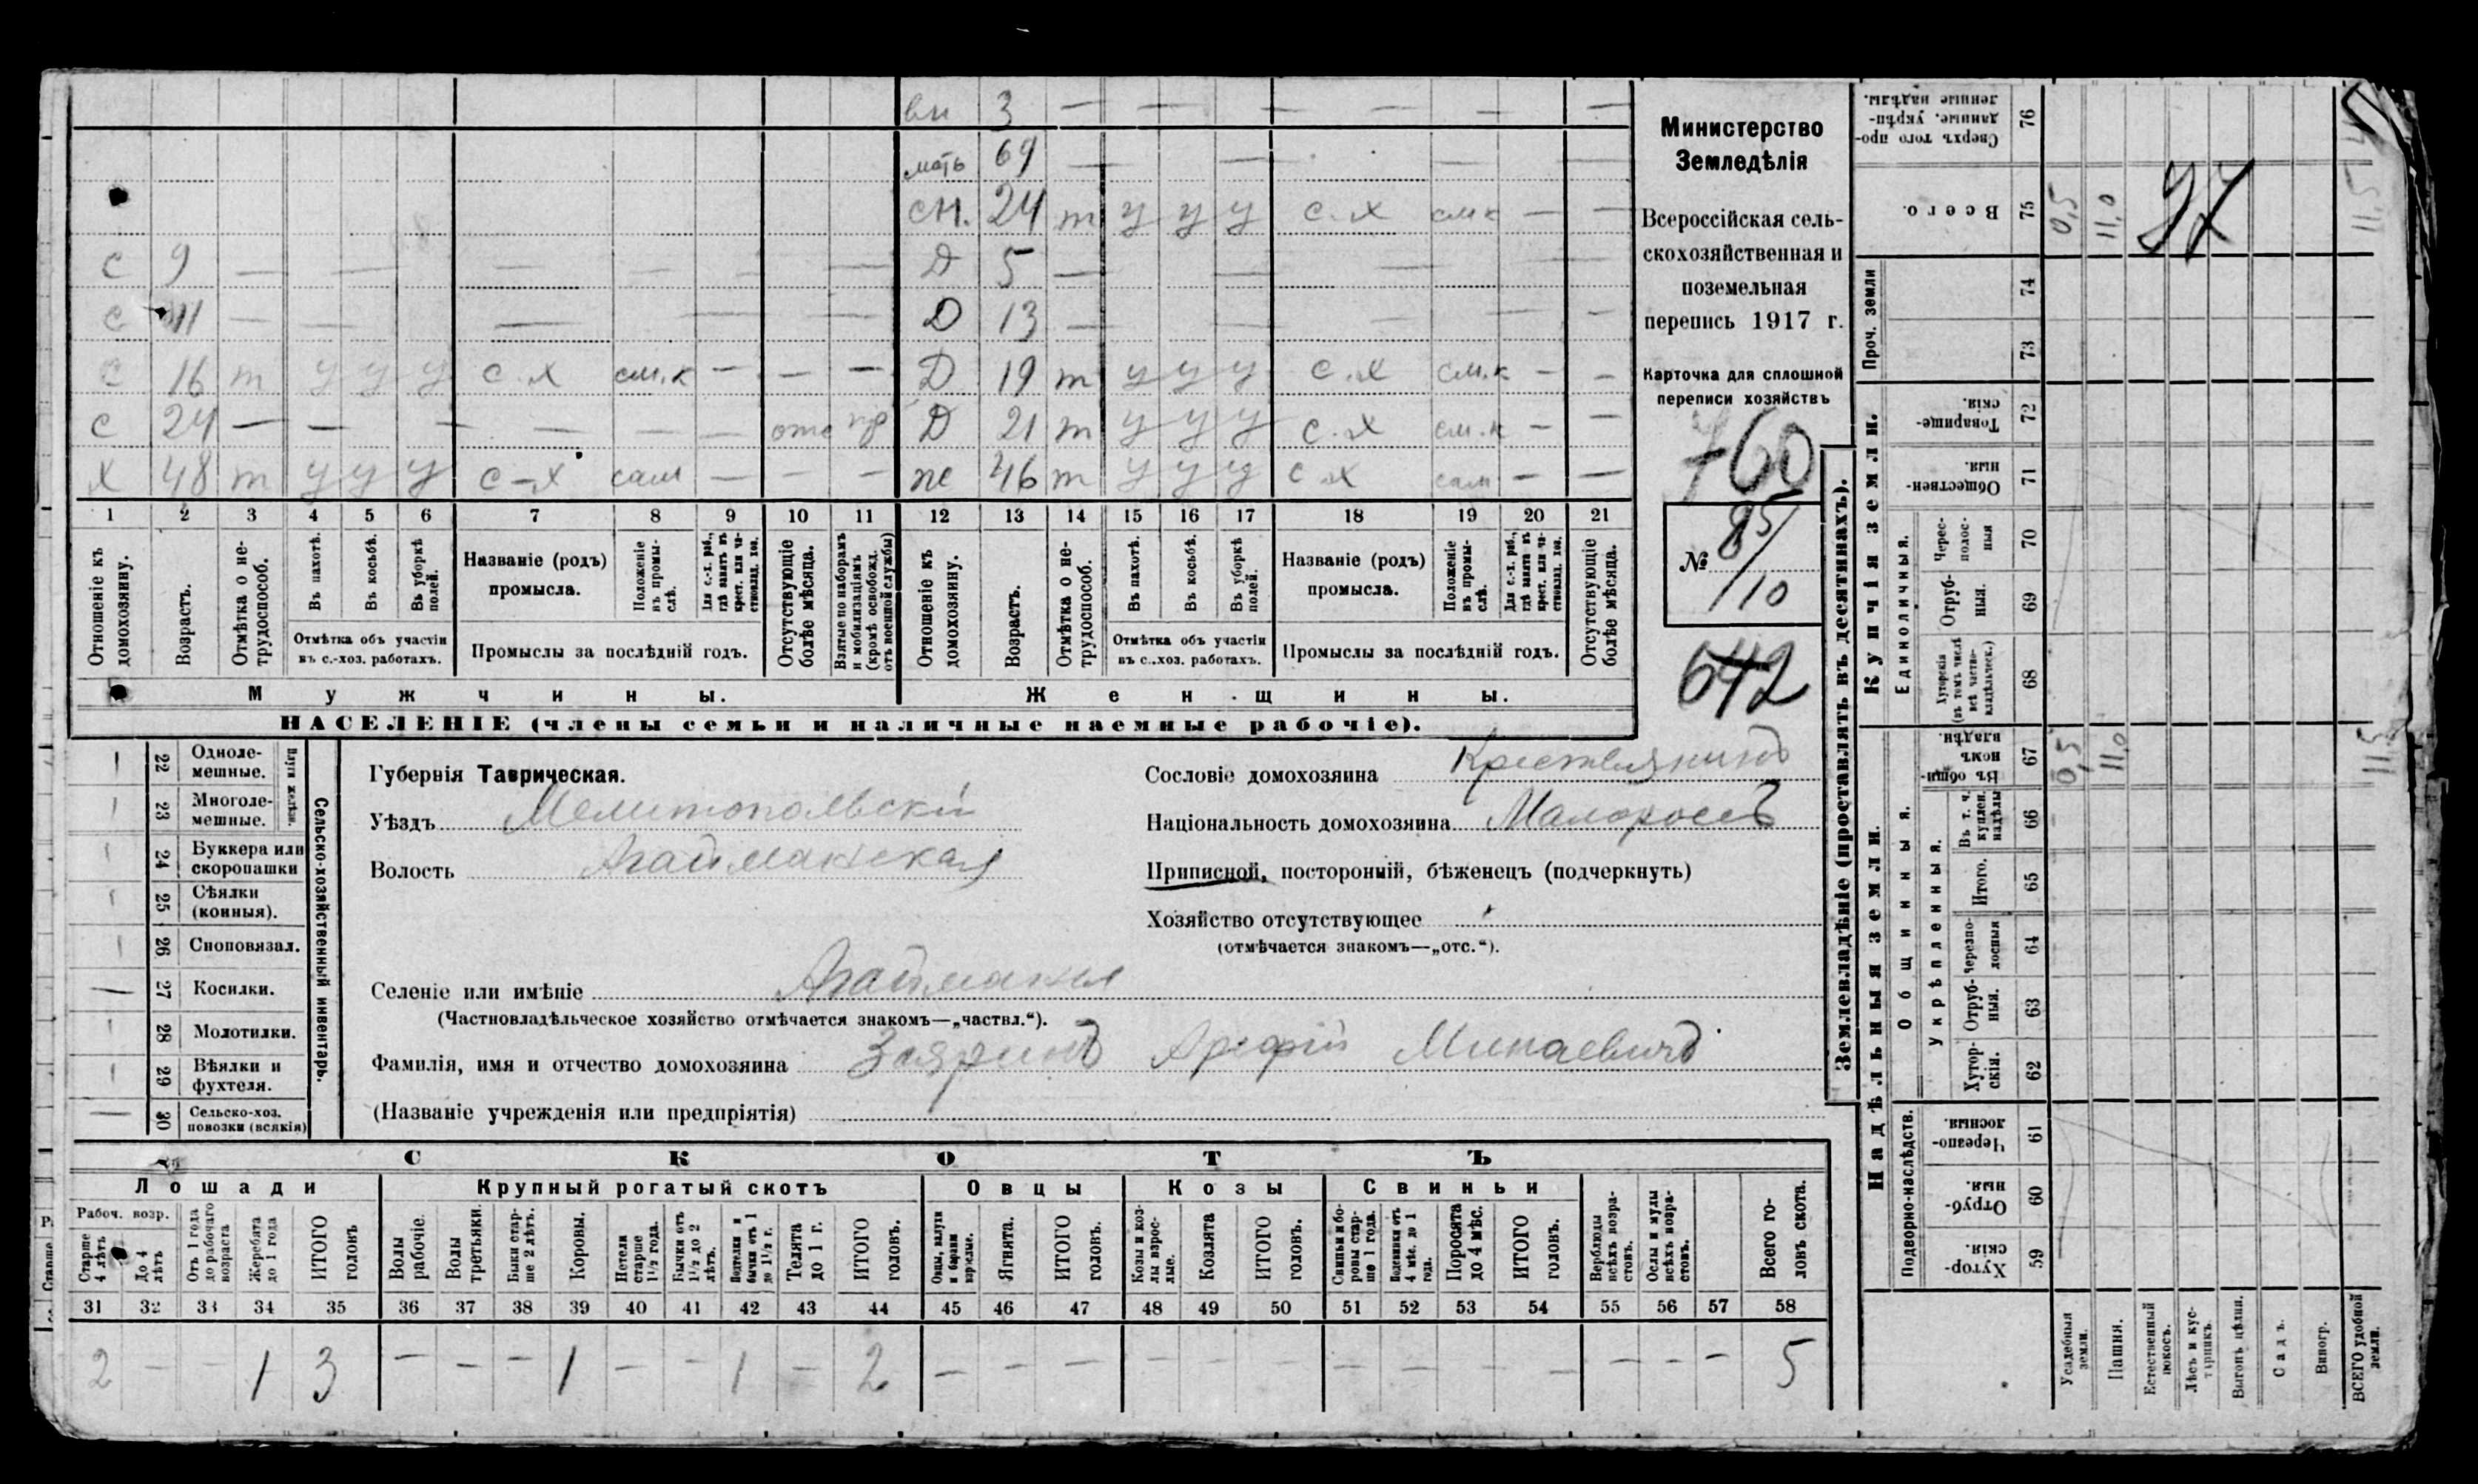 вн 3 — — — — — — —
мать 69 — — — — —
сн. 24 т у у у с.х см к — —
с 9 — — — — — — — Д 5 — — — —
с 11 — — — — — — Д 13 — — — — —
с 16 т у у у с.х см.к — — — Д 19 т у у у с.х см.к — —
с 24 — — — — — — отс пр Д 21 т у у у с.х см.к — —
х 48 т у у у с-х сам — — — ж 46 т у у у с х сам — —
1 2 3 4 5 6 7 8 9 10 11 12 13 14 15 16 17 18 19 20 21
Отношеніе къ домохозяину.
Возрастъ.
Отмѣтка о не-трудоспособ.
Въ пахотѣ.
Въ косьбѣ.
Въ уборкѣ полей.
Отмѣтка объ участіи
въ с.-хоз. работахъ.
Названіе (родъ)
промысла.
Положеніе въ промы-слѣ.
Для с.-х. раб., гдѣ занятъ въ крест. или ча-стновлад. хоз.
Промыслы за послѣдній годъ.
Отсутствующіе болѣе мѣсяца.
Взятые по наборамъ и мобилизаціямъ (кромѣ освобожд. отъ военной службы)
Отношеніе къ домохозяину.
Возрастъ.
Отмѣтка о не-трудоспособ.
Въ пахотѣ.
Въ косьбѣ.
Въ уборкѣ полей.
Отмѣтка объ участіи
въ с.-хоз. работахъ.
Названіе (родъ)
промысла.
Положеніе въ промы-слѣ.
Для с.-х. раб., гдѣ занятъ въ крест. или ча-стновлад. хоз.
Промыслы за послѣдній годъ.
Отсутствующіе болѣе мѣсяца.
Мужчины.
Женщины.
НАСЕЛЕНІЕ (члены семьи и наличные наемные рабочіе).
Министерство
Земледѣлія
Всероссійская сель-
скохозяйственная и
поземельная
перепись 1917 г.
Карточка для сплошной
переписи хозяйствъ
760
№ 85/110
642
22 Одноле-
мешные.
23 Многоле-
мешные.
Плуги желѣзн.
24 Буккера или
скоропашки
25 Сѣялки
(конныя).
26 Сноповязал.
27 Косилки.
28 Молотилки.
29 Вѣялки и
фухтеля.
30 Сельско-хоз.
повозки (всякія)
Сельско-хозяйственный инвентарь.
Губернія Таврическая.
Уѣздъ Мелитопольскій
Волость Агайманская
Сословіе домохозяина Крестьянинъ
Національность домохозяина Малороссъ
Приписной, посторонній, бѣженецъ (подчеркнуть)
Хозяйство отсутствующее
(отмѣчается знакомъ—„отс.“).
Селеніе или имѣніе Агайманы
(Частновладѣльческое хозяйство отмѣчается знакомъ—„частвл.“).
Фамилія, имя и отчество домохозяина Минаевичъ
(Названіе учрежденія или предпріятія)
СКОТЪ
Лошади Крупный рогатый скотъ Овцы Козы Свиньи
Рабоч. возр.
Старше 4 лѣтъ
До 4 лѣтъ
Отъ 1 года до рабочаго возраста
Жеребята до 1 года
ИТОГО головъ
Волы рабочіе.
Волы третьяки.
Быки стар-ше 2 лѣтъ.
Коровы.
Нетели старше 1½ года.
Бычки отъ 1½ до 2 лѣтъ.
Подтелки и бычки отъ 1 до 1½ г.
Телята до 1 г.
ИТОГО головъ.
Овцы, валухи и бараны взрослые.
Ягнята.
ИТОГО головъ.
Козы и коз-лы взрос-лые.
Козлята
ИТОГО головъ.
Свиньи и бо-ровы стар-ше 1 года.
Подсвинки отъ 4 мѣс. до 1 года.
Поросята до 4 мѣс.
ИТОГО головъ.
Верблюды всѣхъ возра-стовъ.
Ослы и мулы всѣхъ возра-стовъ.
Всего го-ловъ скота.
31 32 33 34 35 36 37 38 39 40 41 42 43 44 45 46 47 48 49 50 51 52 53 54 55 56 57 58
2 — — 1 3 — — — 1 — — 1 — 2 — — — — — — — — — — — — — 5
Землевладѣніе (проставлять въ десятинахъ).
Сверхъ того про-данные, укрѣп-ленные надѣлы. 76
Всего. 75 0,5 11,0 11,5
97
Проч. земли 74
73
Купчія земли.
Товарище-скія. 72
Обществен-ныя. 71
Единоличныя.
Черес-полос-ныя 70
Отруб-ныя. 69
Хуторскія (въ томъ числѣ всѣ частно-владѣльческ.) 68
Надѣльныя земли.
Общинныя.
Въ общин-номъ владѣн. 67 0,5 11,0 11,5
Укрѣпленныя.
Въ т. ч. куплен. надѣлы 66
Итого. 65
Черезпо-лосныя 64
Отруб-ныя. 63
Хутор-скія. 62
Подворно-наслѣдств.
Черезпо-лосныя 61
Отруб-ныя. 60
Хутор-скія 59
Усадебныя земли.
Пашня.
Естественный покосъ.
Лѣсъ и кус-тарникъ.
Выгонъ цѣлин.
Садъ.
Виногр.
ВСЕГО удобной земли.